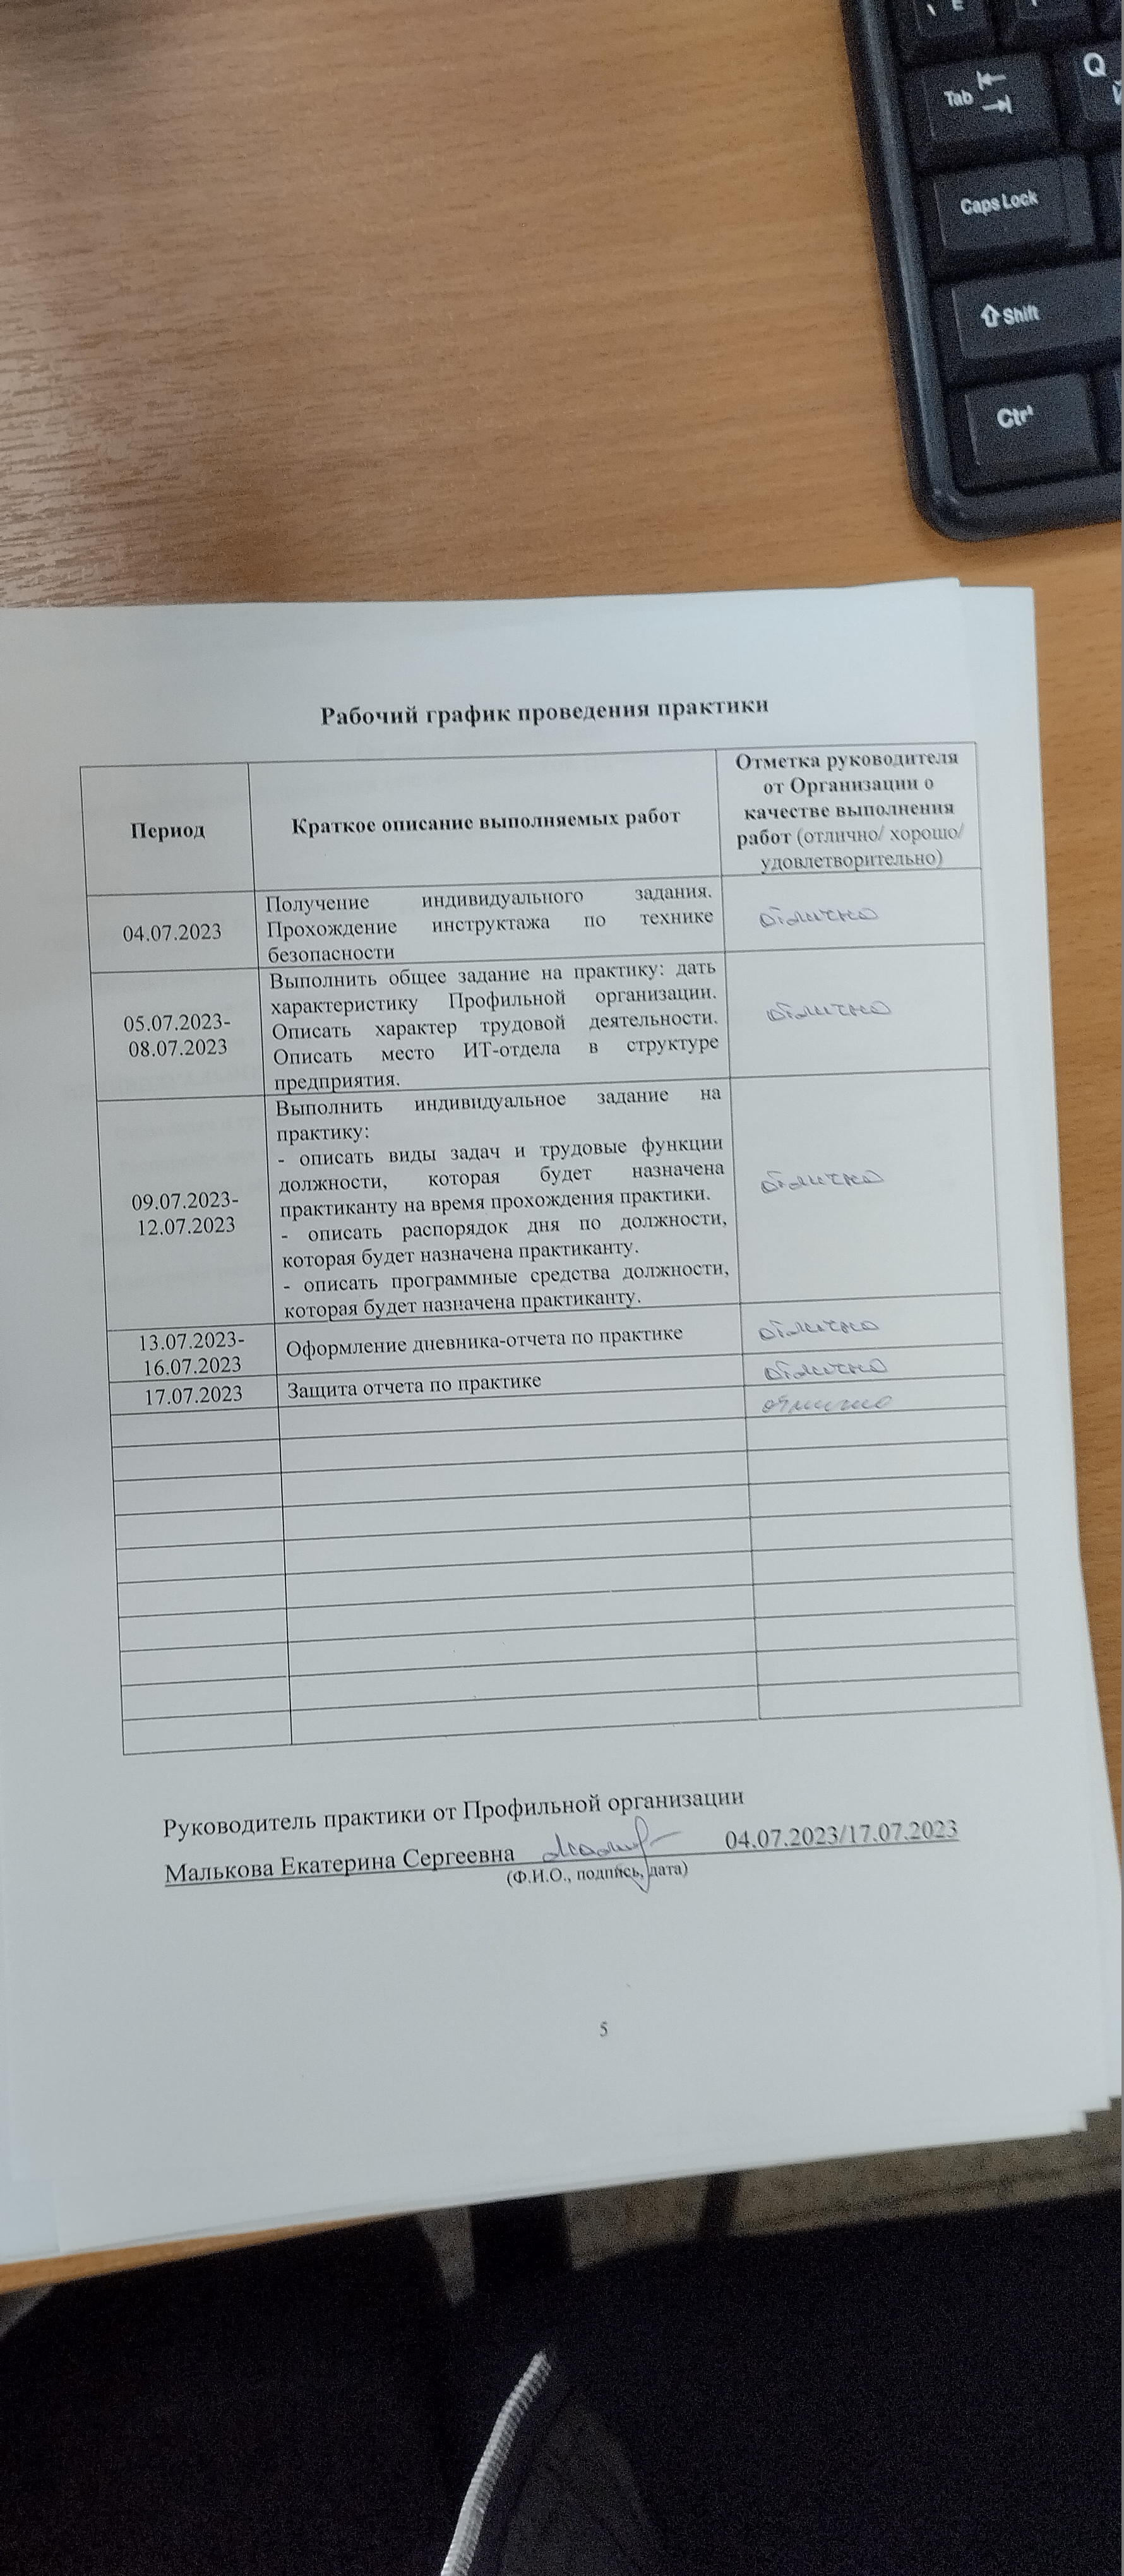 Q
Tab
Caps Lock
Shift
Ctrl
Рабочий график проведения практики
Период
Краткое описание выполняемых работ
Отметка руководителя
от Организации о
качестве выполнения
работ (отлично/ хорошо/
удовлетворительно)
04.07.2023
Получение индивидуального задания.
Прохождение инструктажа по технике
безопасности
отлично
05.07.2023-
08.07.2023
Выполнить общее задание на практику: дать
характеристику Профильной организации.
Описать характер трудовой деятельности.
Описать место ИТ-отдела в структуре
предприятия.
отлично
09.07.2023-
12.07.2023
Выполнить индивидуальное задание на
практику:
- описать виды задач и трудовые функции
должности, которая будет назначена
практиканту на время прохождения практики.
- описать распорядок дня по должности,
которая будет назначена практиканту.
- описать программные средства должности,
которая будет назначена практиканту.
отлично
13.07.2023-
16.07.2023
Оформление дневника-отчета по практике
отлично
17.07.2023
Защита отчета по практике
отлично
отлично
Руководитель практики от Профильной организации
Малькова Екатерина Сергеевна 04.07.2023/17.07.2023
(Ф.И.О., подпись, дата)
5